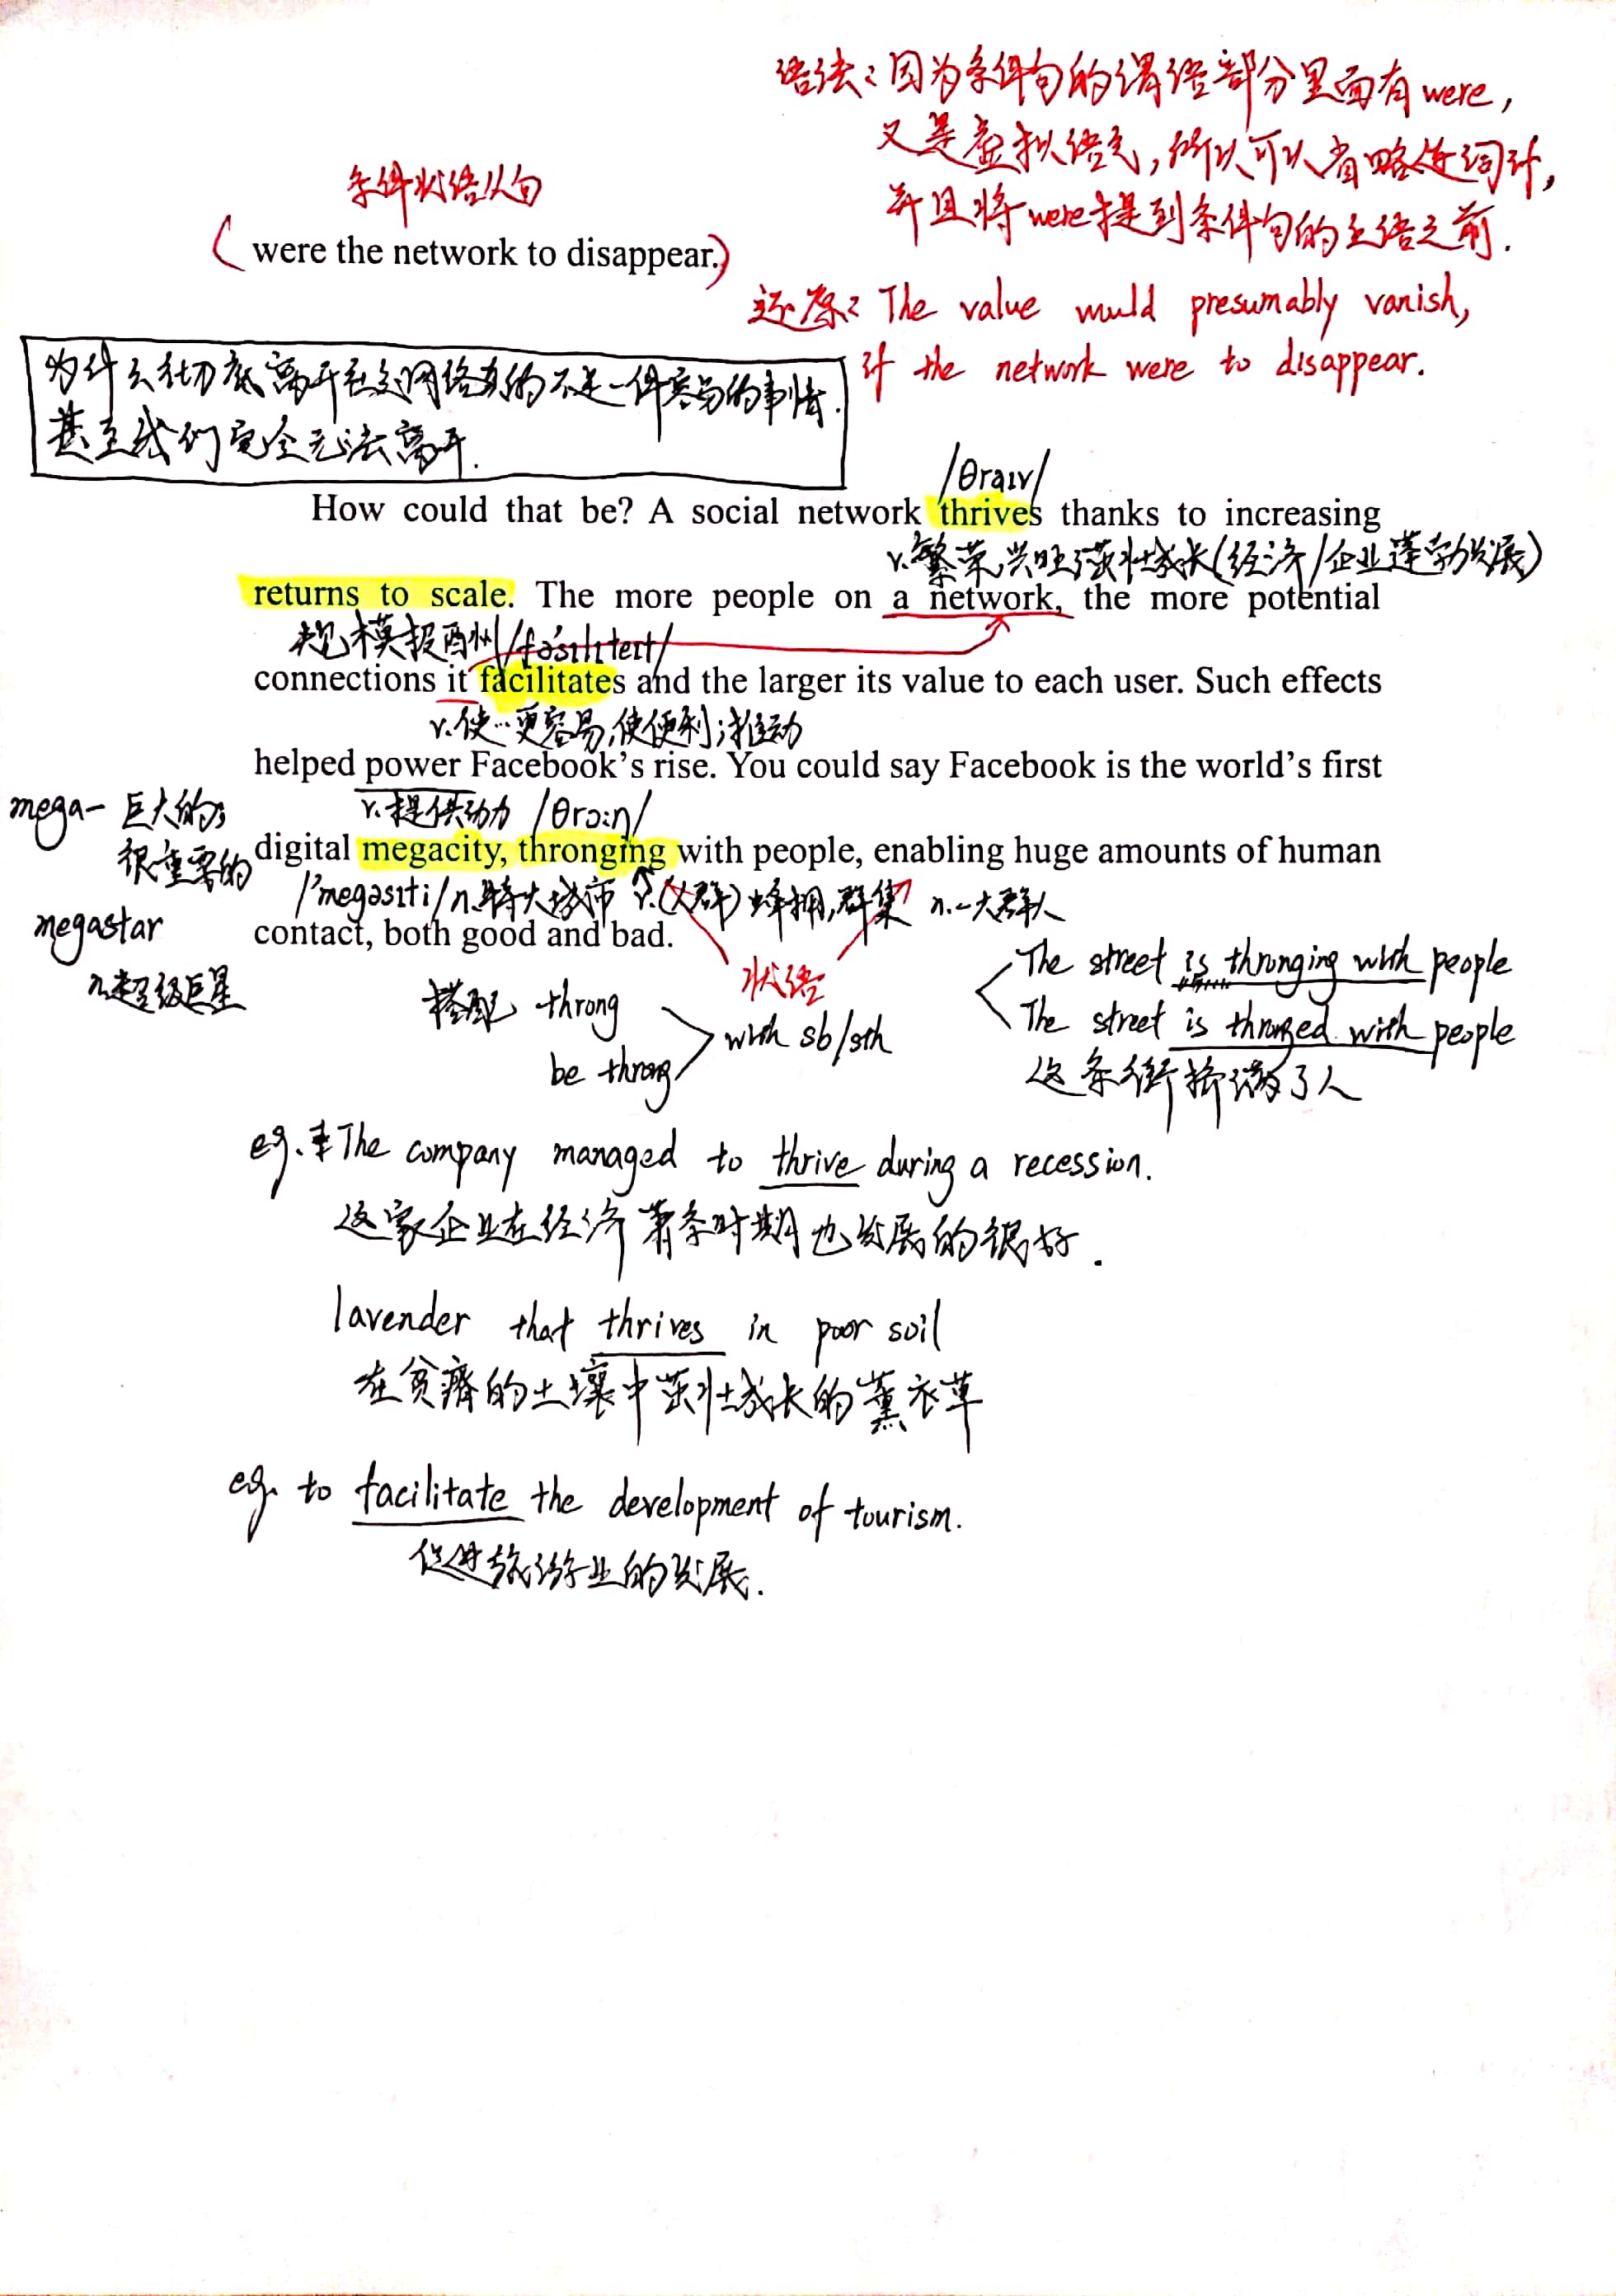 语法：因为条件句的谓语部分里面有were，
又是虚拟语气，所以可以省略连词if，
并且将were提到条件句的主语之前.
条件状语从句
(were the network to disappear.)
还原：The value would presumably vanish,
if the network were to disappear.
为什么彻底离开社交网络真的不是一件容易的事情.
甚至我们完全无法离开.
/θraɪv/
How could that be? A social network thrives thanks to increasing
v.繁荣,兴旺;茁壮成长(经济/企业蓬勃发展)
returns to scale. The more people on a network, the more potential
规模报酬 /fəˈsɪlɪteɪt/
connections it facilitates and the larger its value to each user. Such effects
v.使…更容易,使便利;推动
helped power Facebook's rise. You could say Facebook is the world's first
v.提供动力 /θrɔːŋ/
mega- 巨大的;
很重要的
digital megacity, thronging with people, enabling huge amounts of human
/ˈmegəsɪti/ n.特大城市 v.(人群)蜂拥,群集 n.一大群人
megastar
n.超级巨星
contact, both good and bad.
状语
搭配 throng
be throng
with sb/sth
The street is thronging with people
The street is thronged with people
这条街挤满了人
eg. The company managed to thrive during a recession.
这家企业在经济萧条时期也发展的很好.
lavender that thrives in poor soil
在贫瘠的土壤中茁壮成长的薰衣草
eg. to facilitate the development of tourism.
促进旅游业的发展.